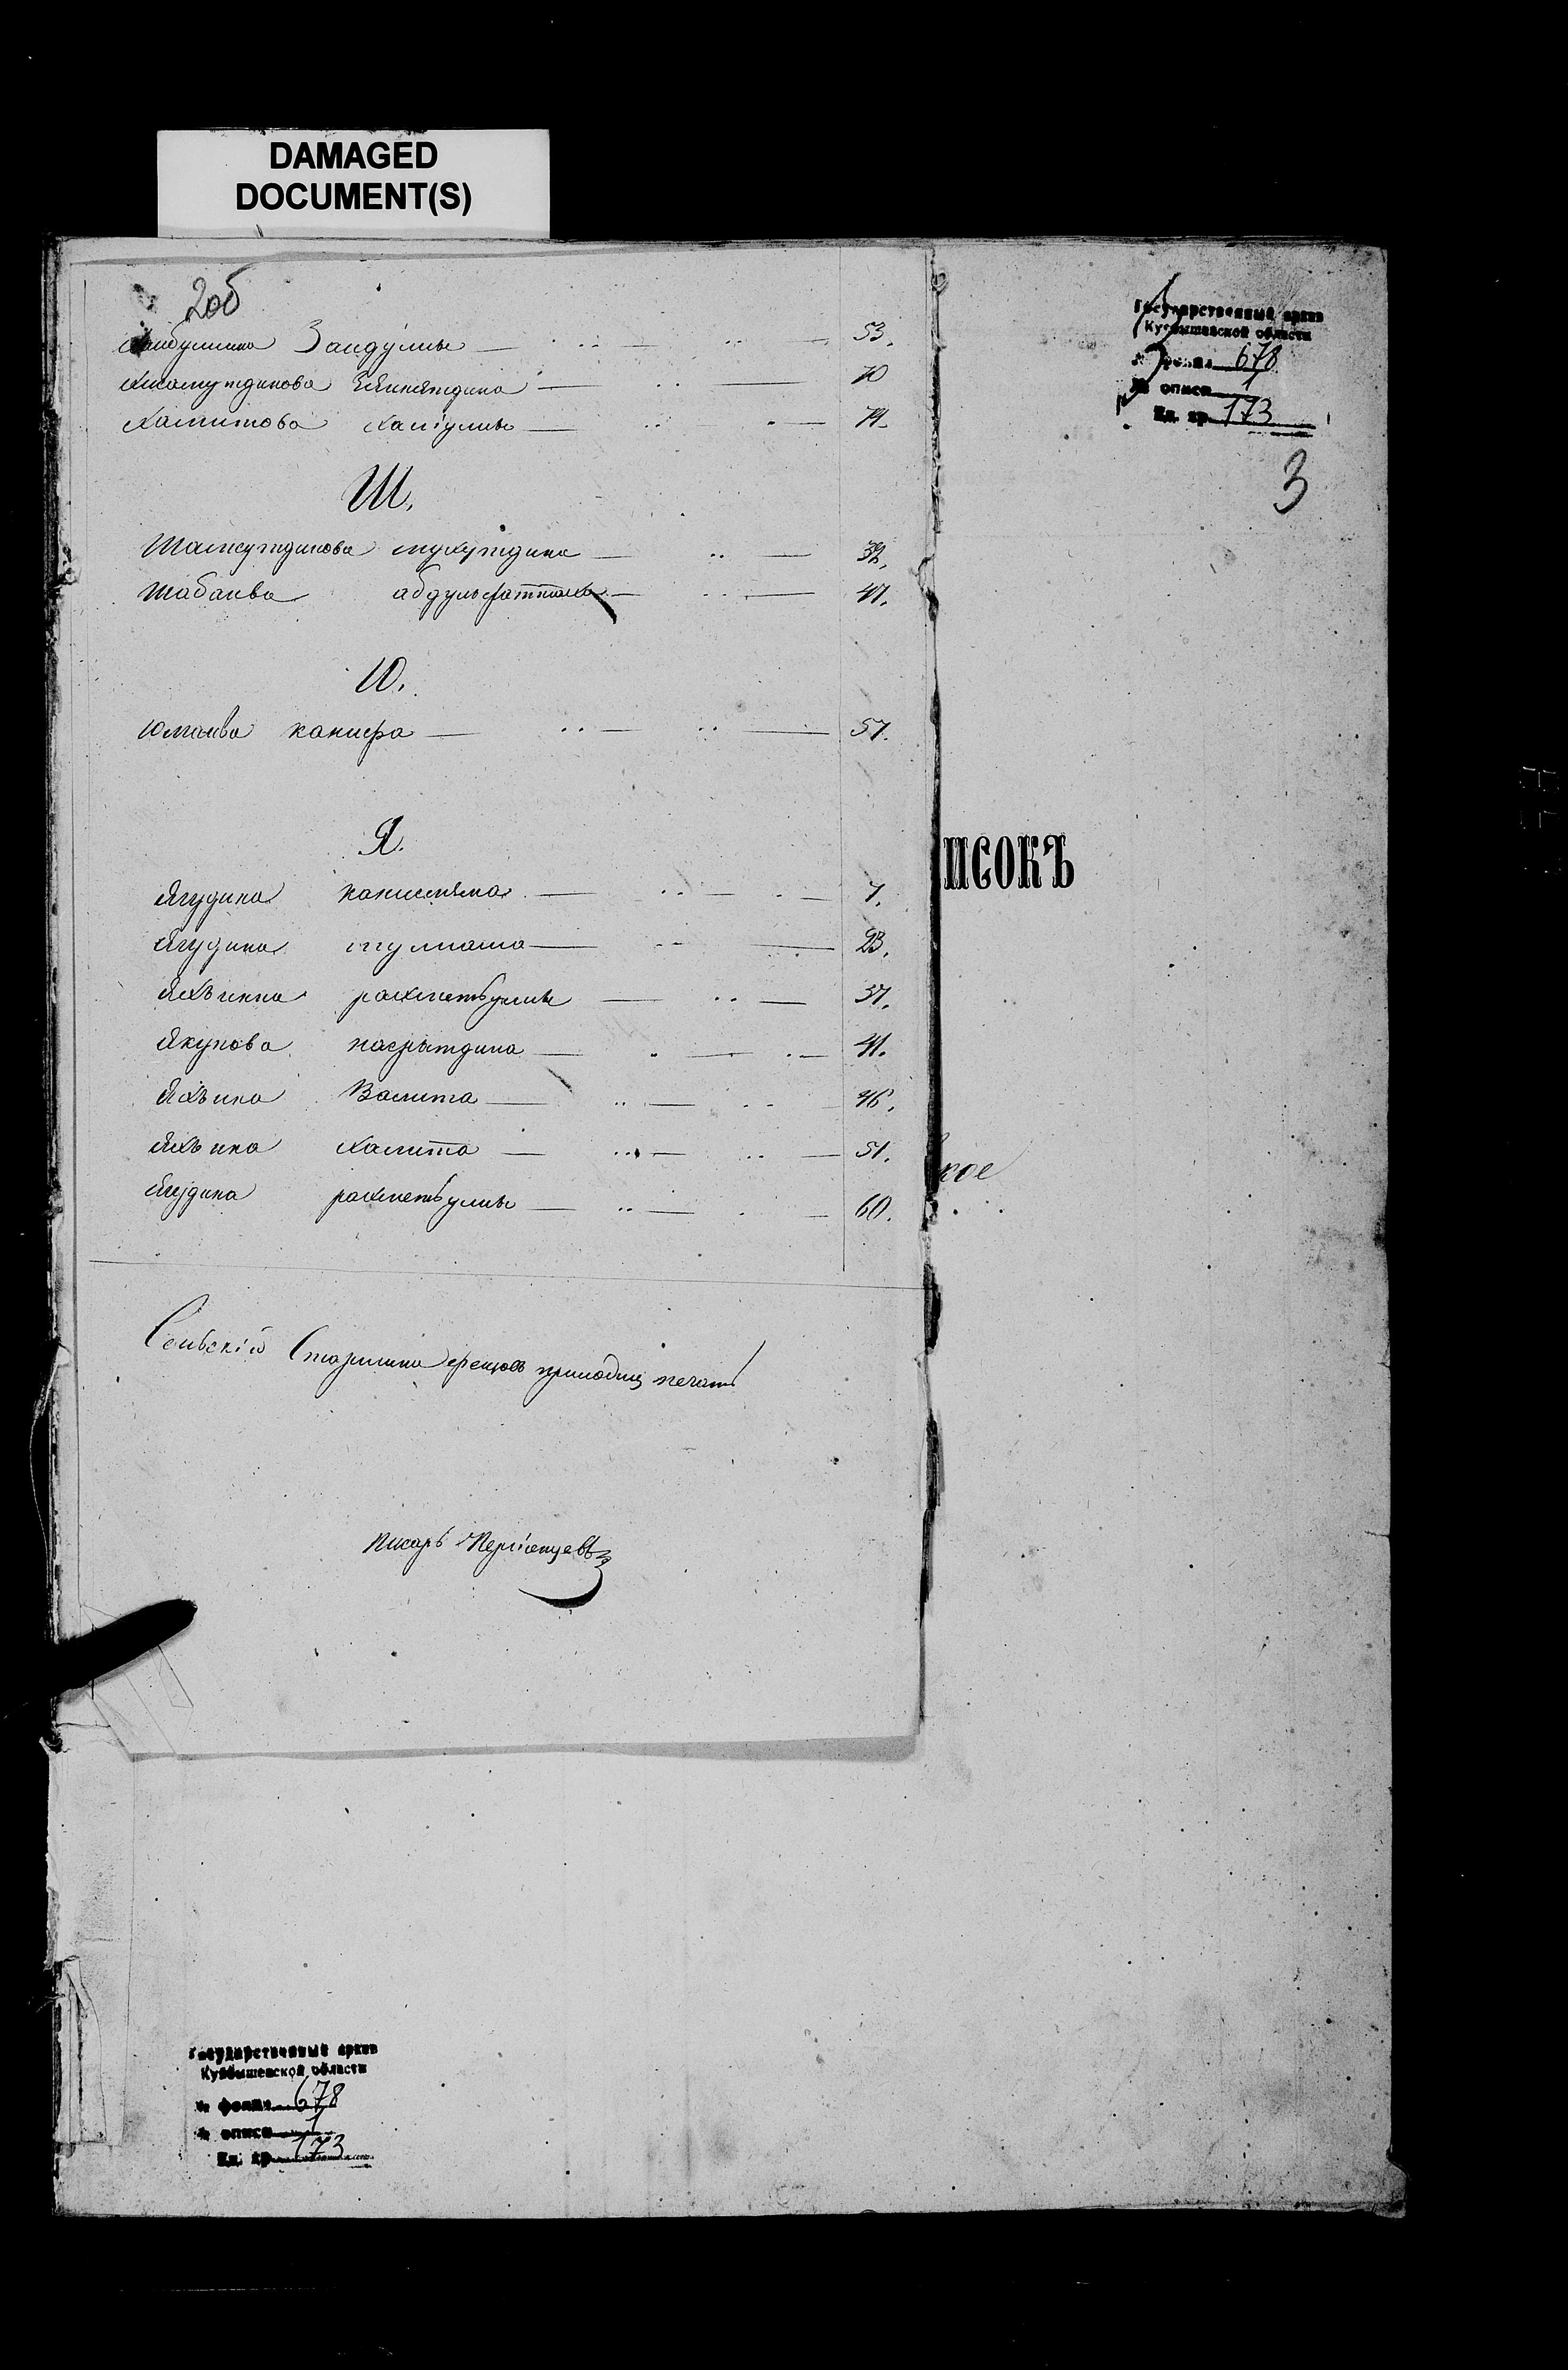 DAMAGED
DOCUMENT(S)
2об
Хайбулина Заидуллы 53.
Хисамутдинова 70
Хамитова Халiуллы 74.
Ш.
Шамсутдинова мухутдина 32.
Шабаева абдулфаттаха 47.
Ю.
Юлтаева канифа 57.
Я.
Ягудина 7.
Ягудина 23.
Яхьина рахметъуллы 37.
Якупова насрытдина 41.
Яхьина Валита 46.
Яхьина халита 51.
Ягудина рахметъуллы 60.
Сельскiй Старшина печать
Писарь
Государственный архив
Куйбышевской области
№ фонда 678
№ описи 1
Ед. хр. 173
3
ИСОКЪ
кое
Государственный архив
Куйбышевской области
№ фонда 678
№ описи 1
Ед. хр. 173